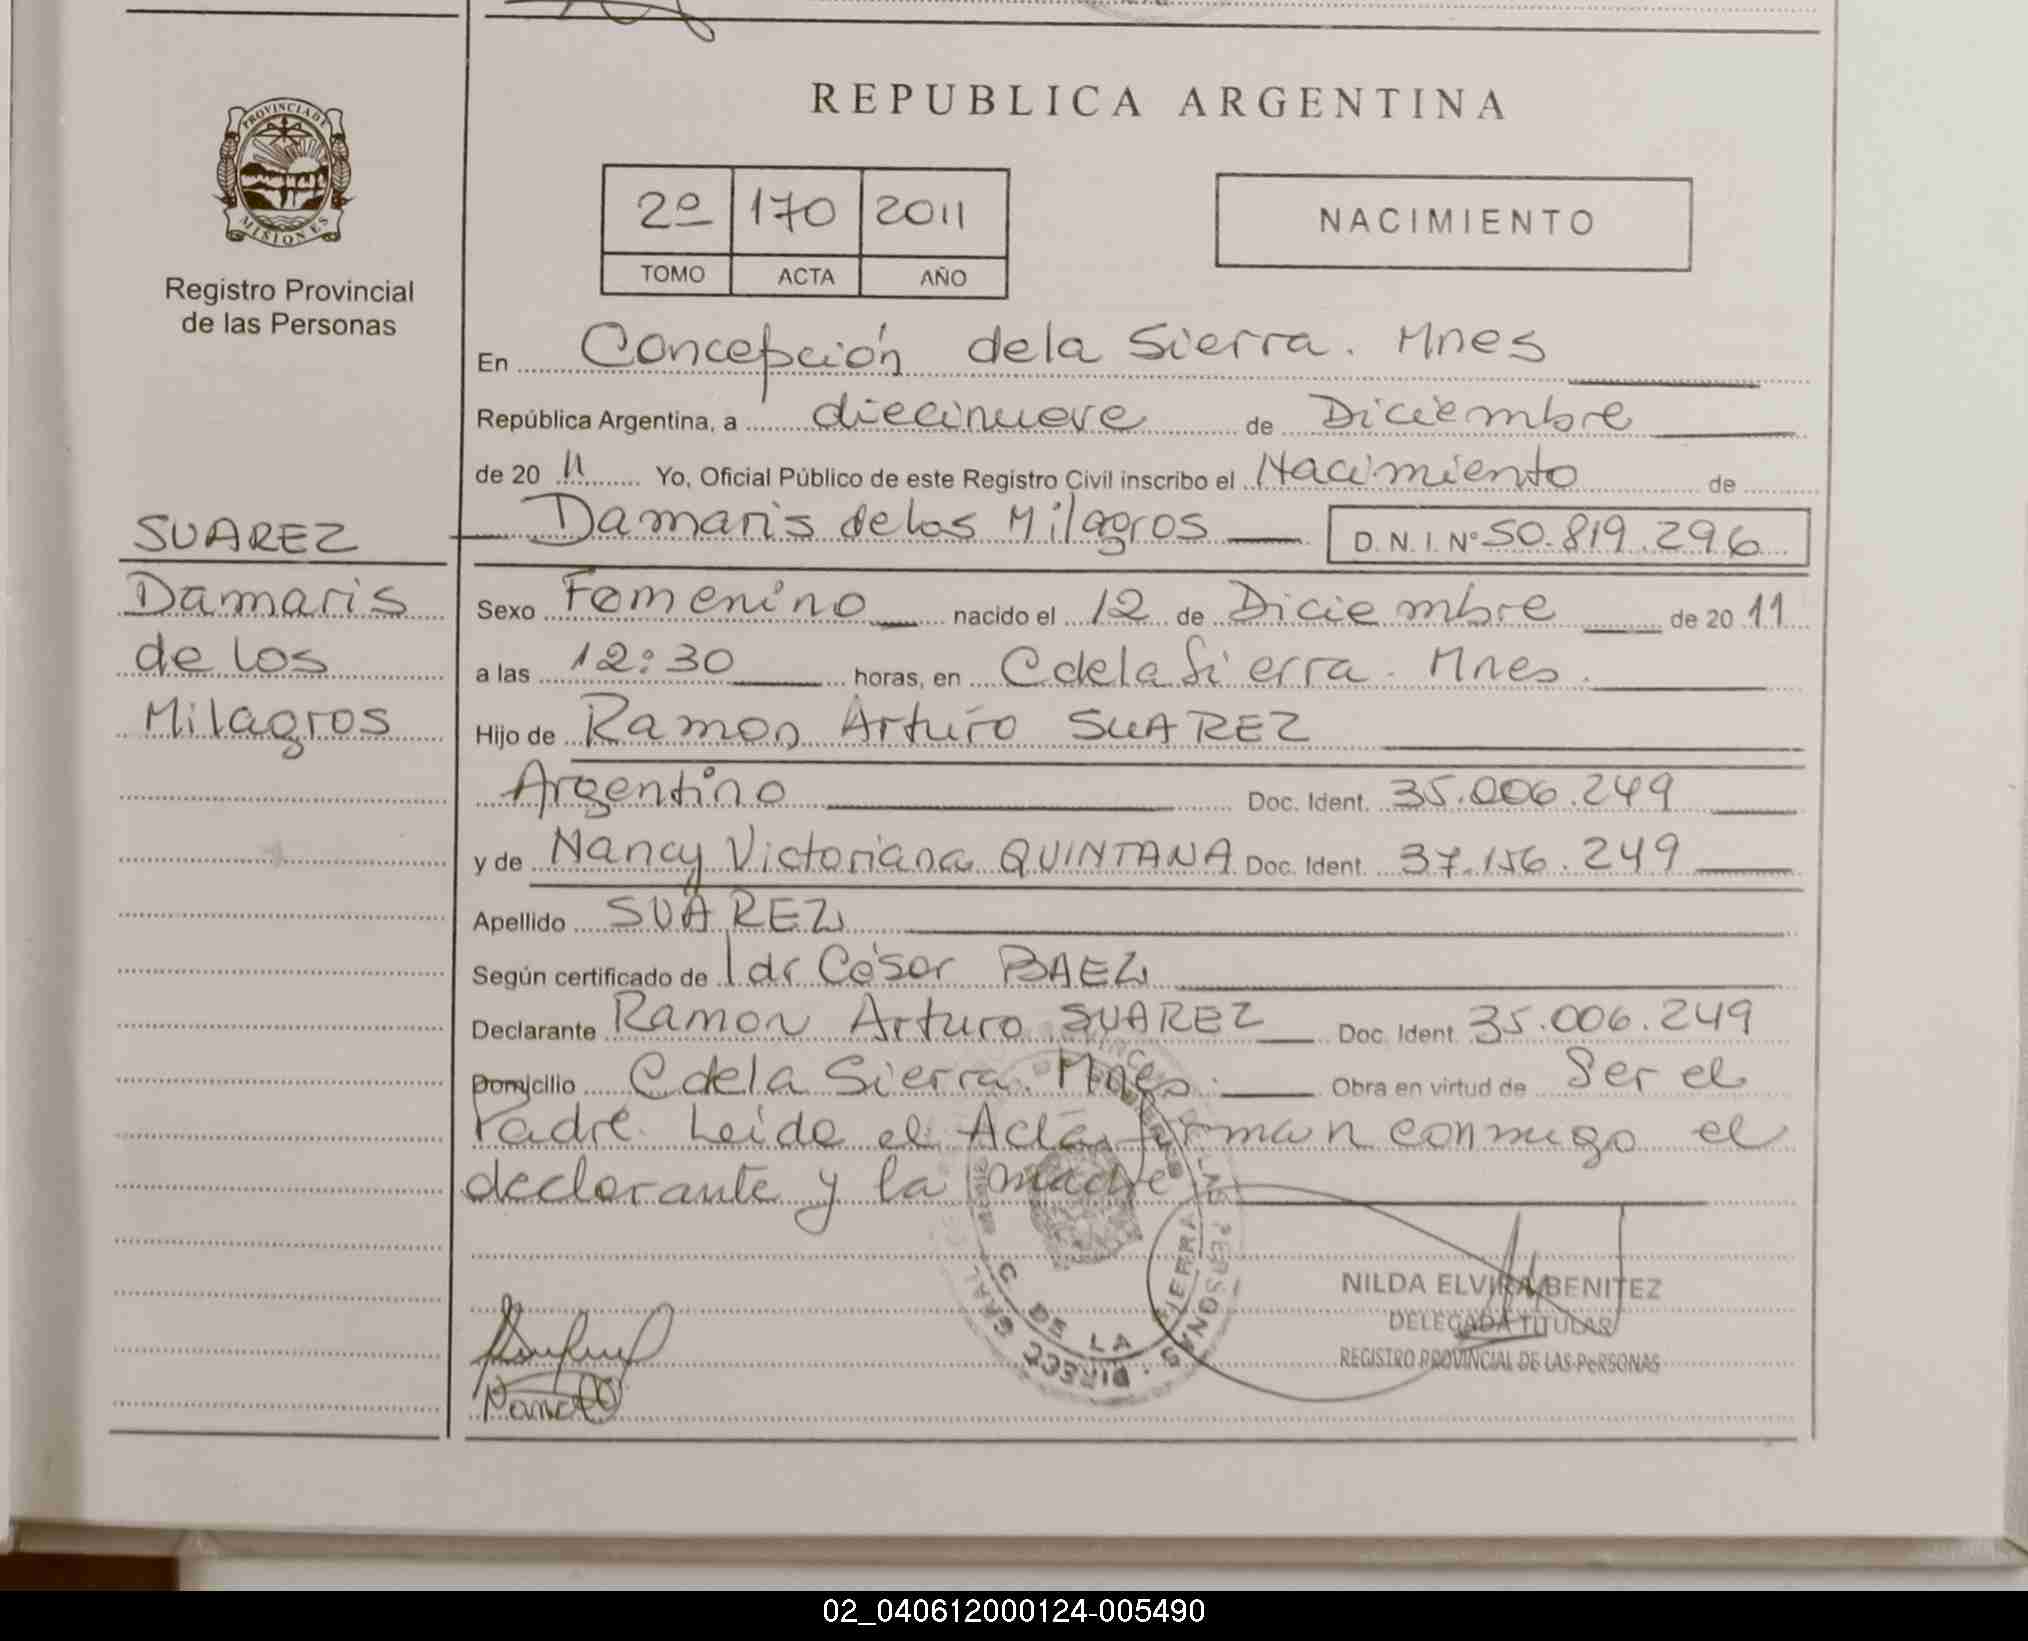 REPUBLICA ARGENTINA
PROVINCIA DE
MISIONES
Registro Provincial
de las Personas
2º 170 2011
TOMO ACTA AÑO
NACIMIENTO
En Concepción de la Sierra. Mnes
República Argentina, a diecinueve de Diciembre
de 20 11 Yo, Oficial Público de este Registro Civil inscribo el Nacimiento de
Damaris de los Milagros D.N.I. Nº 50.819.296
SUAREZ
Damaris
de los
Milagros
Sexo Femenino nacido el 12 de Diciembre de 20 11
a las 12:30 horas, en C de la Sierra. Mnes.
Hijo de Ramon Arturo SUAREZ
Argentino Doc. Ident. 35.006.249
y de Nancy Victoriana QUINTANA Doc. Ident. 37.156.249
Apellido SUAREZ
Según certificado de dr César BAEZ
Declarante Ramon Arturo SUAREZ Doc. Ident. 35.006.249
Domicilio C de la Sierra. Mnes. Obra en virtud de Ser el
Padre. Leida el Acta firman conmigo el
declarante y la madre
C. DE LA SIERRA
NILDA ELVIRA BENITEZ
DELEGADA TITULAR
REGISTRO PROVINCIAL DE LAS PERSONAS
02_040612000124-005490